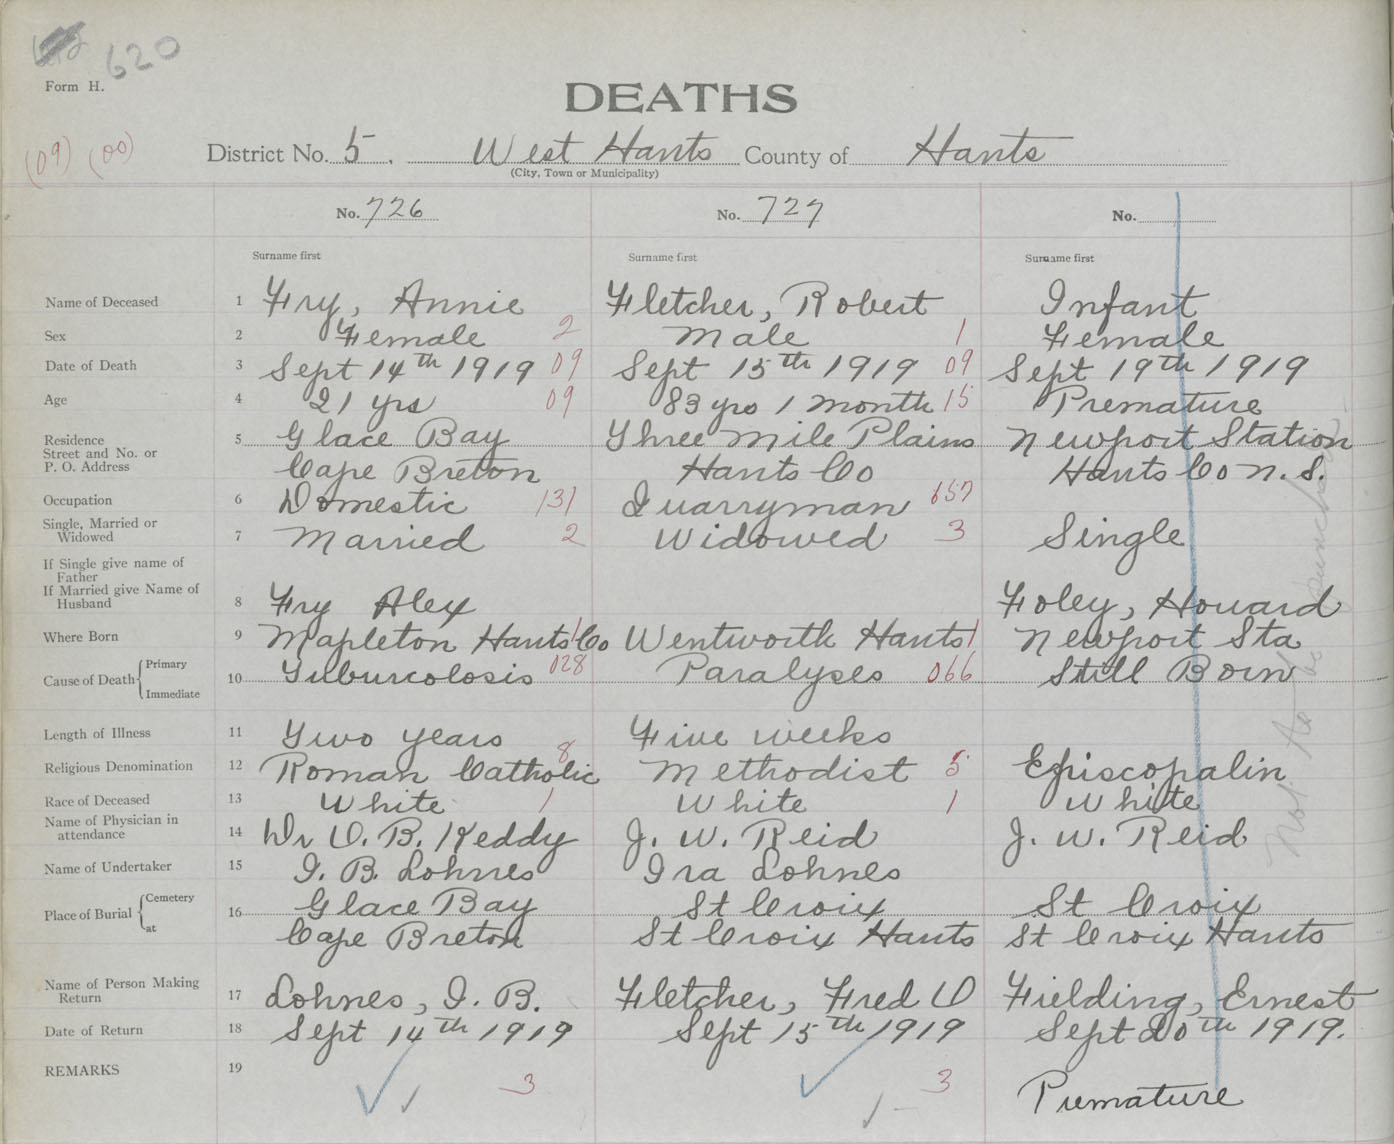 620
Form H.
DEATHS
(09) (00)
District No. 5. West Hants County of Hants
(City, Town or Municipality)
No. 726 No. 727 No.
Surname first Surname first Surname first
Name of Deceased 1 Fry, Annie Fletcher, Robert Infant
Sex 2 Female 2 Male 1 Female
Date of Death 3 Sept 14th 1919 09 Sept 15th 1919 09 Sept 19th 1919
Age 4 21 yrs 09 83 yrs 1 month 15 Premature
Residence
Street and No. or 5 Glace Bay Three Mile Plains Newport Station
P. O. Address Cape Breton Hants Co Hants Co N. S.
Occupation 6 Domestic 131 Quarryman 657
Single, Married or
Widowed 7 Married 2 Widowed 3 Single
If Single give name of
Father
If Married give Name of
Husband 8 Fry Alex Foley, Howard
Where Born 9 Mapleton Hants Co 1 Wentworth Hants 1 Newport Sta
Cause of Death { Primary
Immediate 10 Tuburcolosis 028 Paralyses 066 Still Born
Length of Illness 11 Two years Five weeks
Religious Denomination 12 Roman Catholic 8 Methodist 5 Episcopalin
Race of Deceased 13 White 1 White 1 White
Name of Physician in
attendance 14 Dr O. B. Keddy J. W. Reid J. W. Reid
Name of Undertaker 15 I. B. Lohnes Ira Lohnes
Place of Burial { Cemetery
at 16 Glace Bay St Croix St Croix
Cape Breton St Croix Hants St Croix Hants
Name of Person Making
Return 17 Lohnes, I. B. Fletcher, Fred O Fielding, Ernest
Date of Return 18 Sept 14th 1919 Sept 15th 1919 Sept 20th 1919.
REMARKS 19 3 3 Premature
Not to be punched